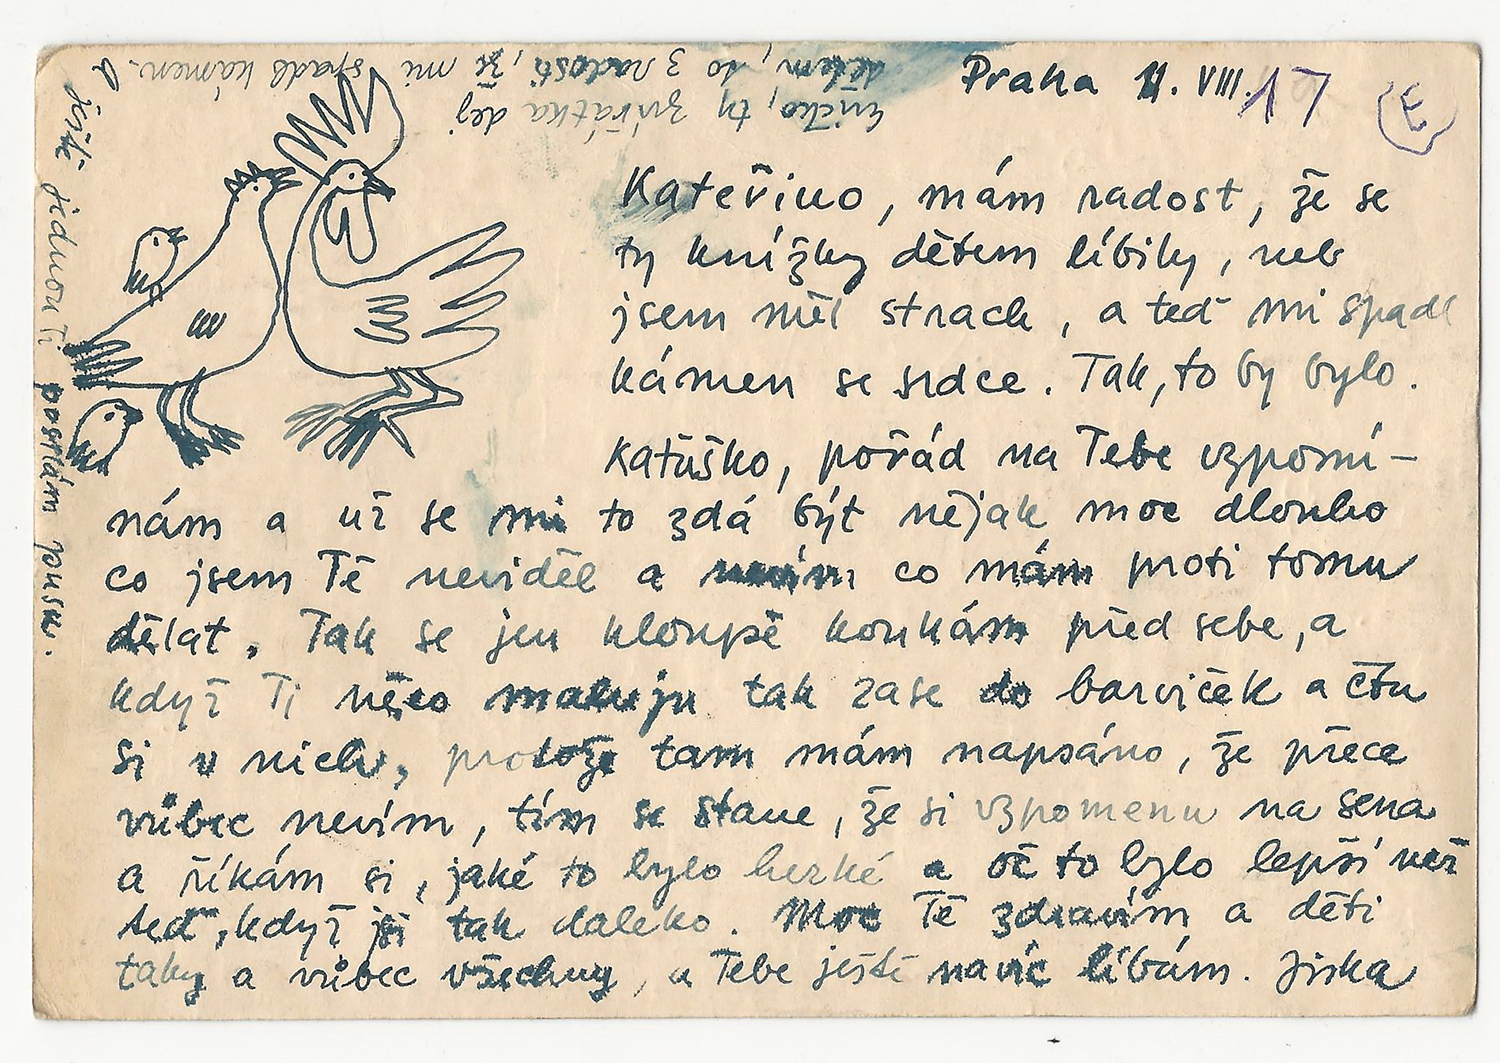 Praha 11. VIII. 17 E
Kateřino, mám radost, že se
ty knížky dětem líbily, neb
jsem měl strach, a teď mi spadl
kámen se srdce. Tak, to by bylo.
Katuško, pořád na Tebe vzpomí-
nám a už se mi to zdá být nějak moc dlouho
co jsem Tě neviděl a nevím co mám proti tomu
dělat. Tak se jen kloupě koukám před sebe, a
když Ti něco maluju tak zase do barviček a čtu
si v nich, protože tam mám napsáno, že přece
vůbec nevím, tím se stane, že si vzpomenu na sena
a říkám si, jaké to bylo hezké a oč to bylo lepší než
teď, když jsi tak daleko. Moc Tě zdravím a děti
taky a vůbec všechny, a Tebe ještě navíc líbám. Jirka
a ještě jednou Ti posílám pusu.
ty zvířátka dej
dětem, to z radosti, že mi spadl kámen.